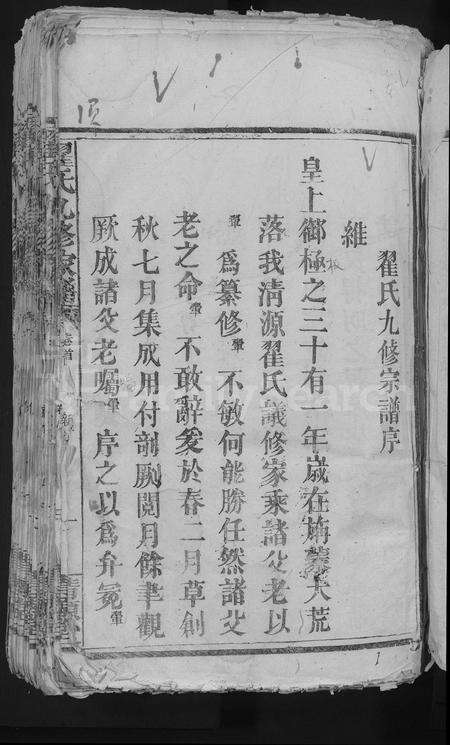 翟氏九修宗譜序
維
皇上御極之三十有一年歲在旃蒙大荒
落我清源翟氏議修家乘諸父老以
肇為纂修肇不敏何能勝任然諸父
老之命肇不敢辭爰於春二月草創
秋七月集成用付剞劂閱月餘聿觀
厥成諸父老囑肇序之以為弁冕肇
翟氏九修家譜
卷首